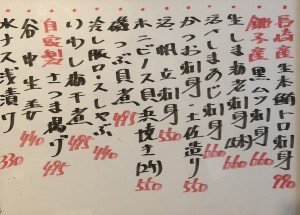 長崎産 生本鮪トロ刺身 990
銚子産 黒ムツ刺身 660
生しまあじ刺身 660
活〆しまあじ刺身 660
かつお刺身・土佐造り 550
活帆立刺身 550
ホンビノス貝浜焼き(2ケ) 550
磯つぶ貝煮 495
冷し豚ロースしゃぶ 440
いわし梅干煮 495
自家製 さつま揚げ 495
谷中生姜 440
水ナス浅漬り 330